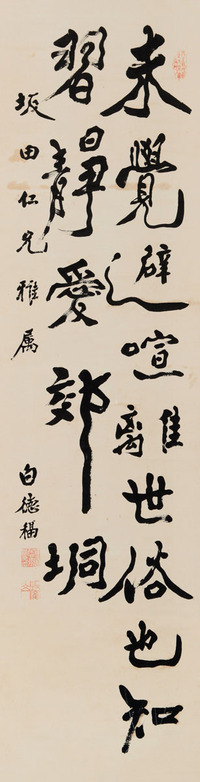 未覺避喧離世俗也知
習靜愛郊坰
坂田仁兄雅属
白德福